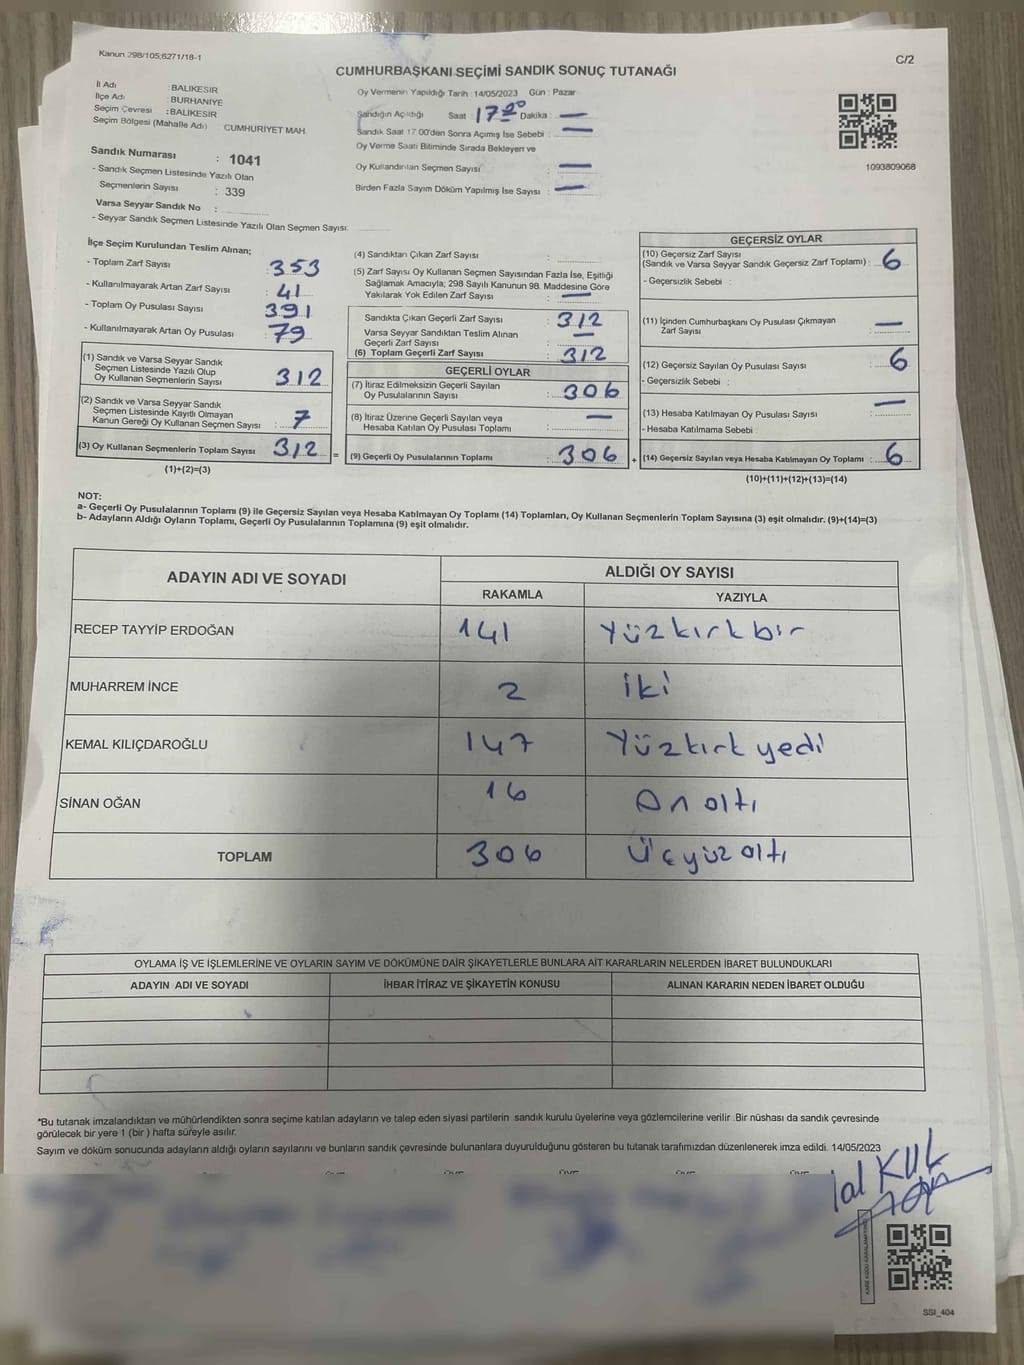 Kanun 298/105;6271/18-1
C/2
CUMHURBAŞKANI SEÇİMİ SANDIK SONUÇ TUTANAĞI
İl Adı : BALIKESİR
İlçe Adı : BURHANİYE
Seçim Çevresi : BALIKESİR
Seçim Bölgesi (Mahalle Adı) CUMHURİYET MAH.
Sandık Numarası : 1041
- Sandık Seçmen Listesinde Yazılı Olan
Seçmenlerin Sayısı : 339
Varsa Seyyar Sandık No :
- Seyyar Sandık Seçmen Listesinde Yazılı Olan Seçmen Sayısı:
Oy Vermenin Yapıldığı Tarih : 14/05/2023 Gün : Pazar
Sandığın Açıldığı Saat 17 20 Dakika : —
Sandık Saat 17.00'den Sonra Açımış İse Sebebi : —
Oy Verme Saati Bitiminde Sırada Bekleyen ve
Oy Kullandırılan Seçmen Sayısı : —
Birden Fazla Sayım Döküm Yapılmış İse Sayısı : —
1093809068
İlçe Seçim Kurulundan Teslim Alınan;
- Toplam Zarf Sayısı : 353
- Kullanılmayarak Artan Zarf Sayısı : 41
- Toplam Oy Pusulası Sayısı : 391
- Kullanılmayarak Artan Oy Pusulası : 79
(1) Sandık ve Varsa Seyyar Sandık
Seçmen Listesinde Yazılı Olup
Oy Kullanan Seçmenlerin Sayısı : 312
(2) Sandık ve Varsa Seyyar Sandık
Seçmen Listesinde Kayıtlı Olmayan
Kanun Gereği Oy Kullanan Seçmen Sayısı : 7
(3) Oy Kullanan Seçmenlerin Toplam Sayısı : 312 =
(1)+(2)=(3)
(4) Sandıktan Çıkan Zarf Sayısı :
(5) Zarf Sayısı Oy Kullanan Seçmen Sayısından Fazla İse, Eşitliği
Sağlamak Amacıyla; 298 Sayılı Kanunun 98. Maddesine Göre
Yakılarak Yok Edilen Zarf Sayısı : —
Sandıkta Çıkan Geçerli Zarf Sayısı : 312
Varsa Seyyar Sandıktan Teslim Alınan
Geçerli Zarf Sayısı : —
(6) Toplam Geçerli Zarf Sayısı : 312
GEÇERLİ OYLAR
(7) İtiraz Edilmeksizin Geçerli Sayılan
Oy Pusulalarının Sayısı : 306
(8) İtiraz Üzerine Geçerli Sayılan veya
Hesaba Katılan Oy Pusulası Toplamı : —
(9) Geçerli Oy Pusulalarının Toplamı : 306 +
GEÇERSİZ OYLAR
(10) Geçersiz Zarf Sayısı
(Sandık ve Varsa Seyyar Sandık Geçersiz Zarf Toplamı) : 6
- Geçersizlik Sebebi :
(11) İçinden Cumhurbaşkanı Oy Pusulası Çıkmayan
Zarf Sayısı : —
(12) Geçersiz Sayılan Oy Pusulası Sayısı : 6
- Geçersizlik Sebebi :
(13) Hesaba Katılmayan Oy Pusulası Sayısı : —
- Hesaba Katılmama Sebebi :
(14) Geçersiz Sayılan veya Hesaba Katılmayan Oy Toplamı : 6
(10)+(11)+(12)+(13)=(14)
NOT:
a- Geçerli Oy Pusulalarının Toplamı (9) ile Geçersiz Sayılan veya Hesaba Katılmayan Oy Toplamı (14) Toplamları, Oy Kullanan Seçmenlerin Toplam Sayısına (3) eşit olmalıdır. (9)+(14)=(3)
b- Adayların Aldığı Oyların Toplamı, Geçerli Oy Pusulalarının Toplamına (9) eşit olmalıdır.
ADAYIN ADI VE SOYADI
ALDIĞI OY SAYISI
RAKAMLA YAZIYLA
RECEP TAYYİP ERDOĞAN 141 Yüzkırkbir
MUHARREM İNCE 2 iki
KEMAL KILIÇDAROĞLU 147 Yüzkırk yedi
SİNAN OĞAN 16 On altı
TOPLAM 306 Üçyüz altı
OYLAMA İŞ VE İŞLEMLERİNE VE OYLARIN SAYIM VE DÖKÜMÜNE DAİR ŞİKAYETLERLE BUNLARA AİT KARARLARIN NELERDEN İBARET BULUNDUKLARI
ADAYIN ADI VE SOYADI İHBAR İTİRAZ VE ŞİKAYETİN KONUSU ALINAN KARARIN NEDEN İBARET OLDUĞU
*Bu tutanak imzalandıktan ve mühürlendikten sonra seçime katılan adayların ve talep eden siyasi partilerin sandık kurulu üyelerine veya gözlemcilerine verilir .Bir nüshası da sandık çevresinde
görülecek bir yere 1 (bir ) hafta süreyle asılır.
Sayım ve döküm sonucunda adayların aldığı oyların sayılarını ve bunların sandık çevresinde bulunanlara duyurulduğunu gösteren bu tutanak tarafımızdan düzenlenerek imza edildi. 14/05/2023
SSI_404